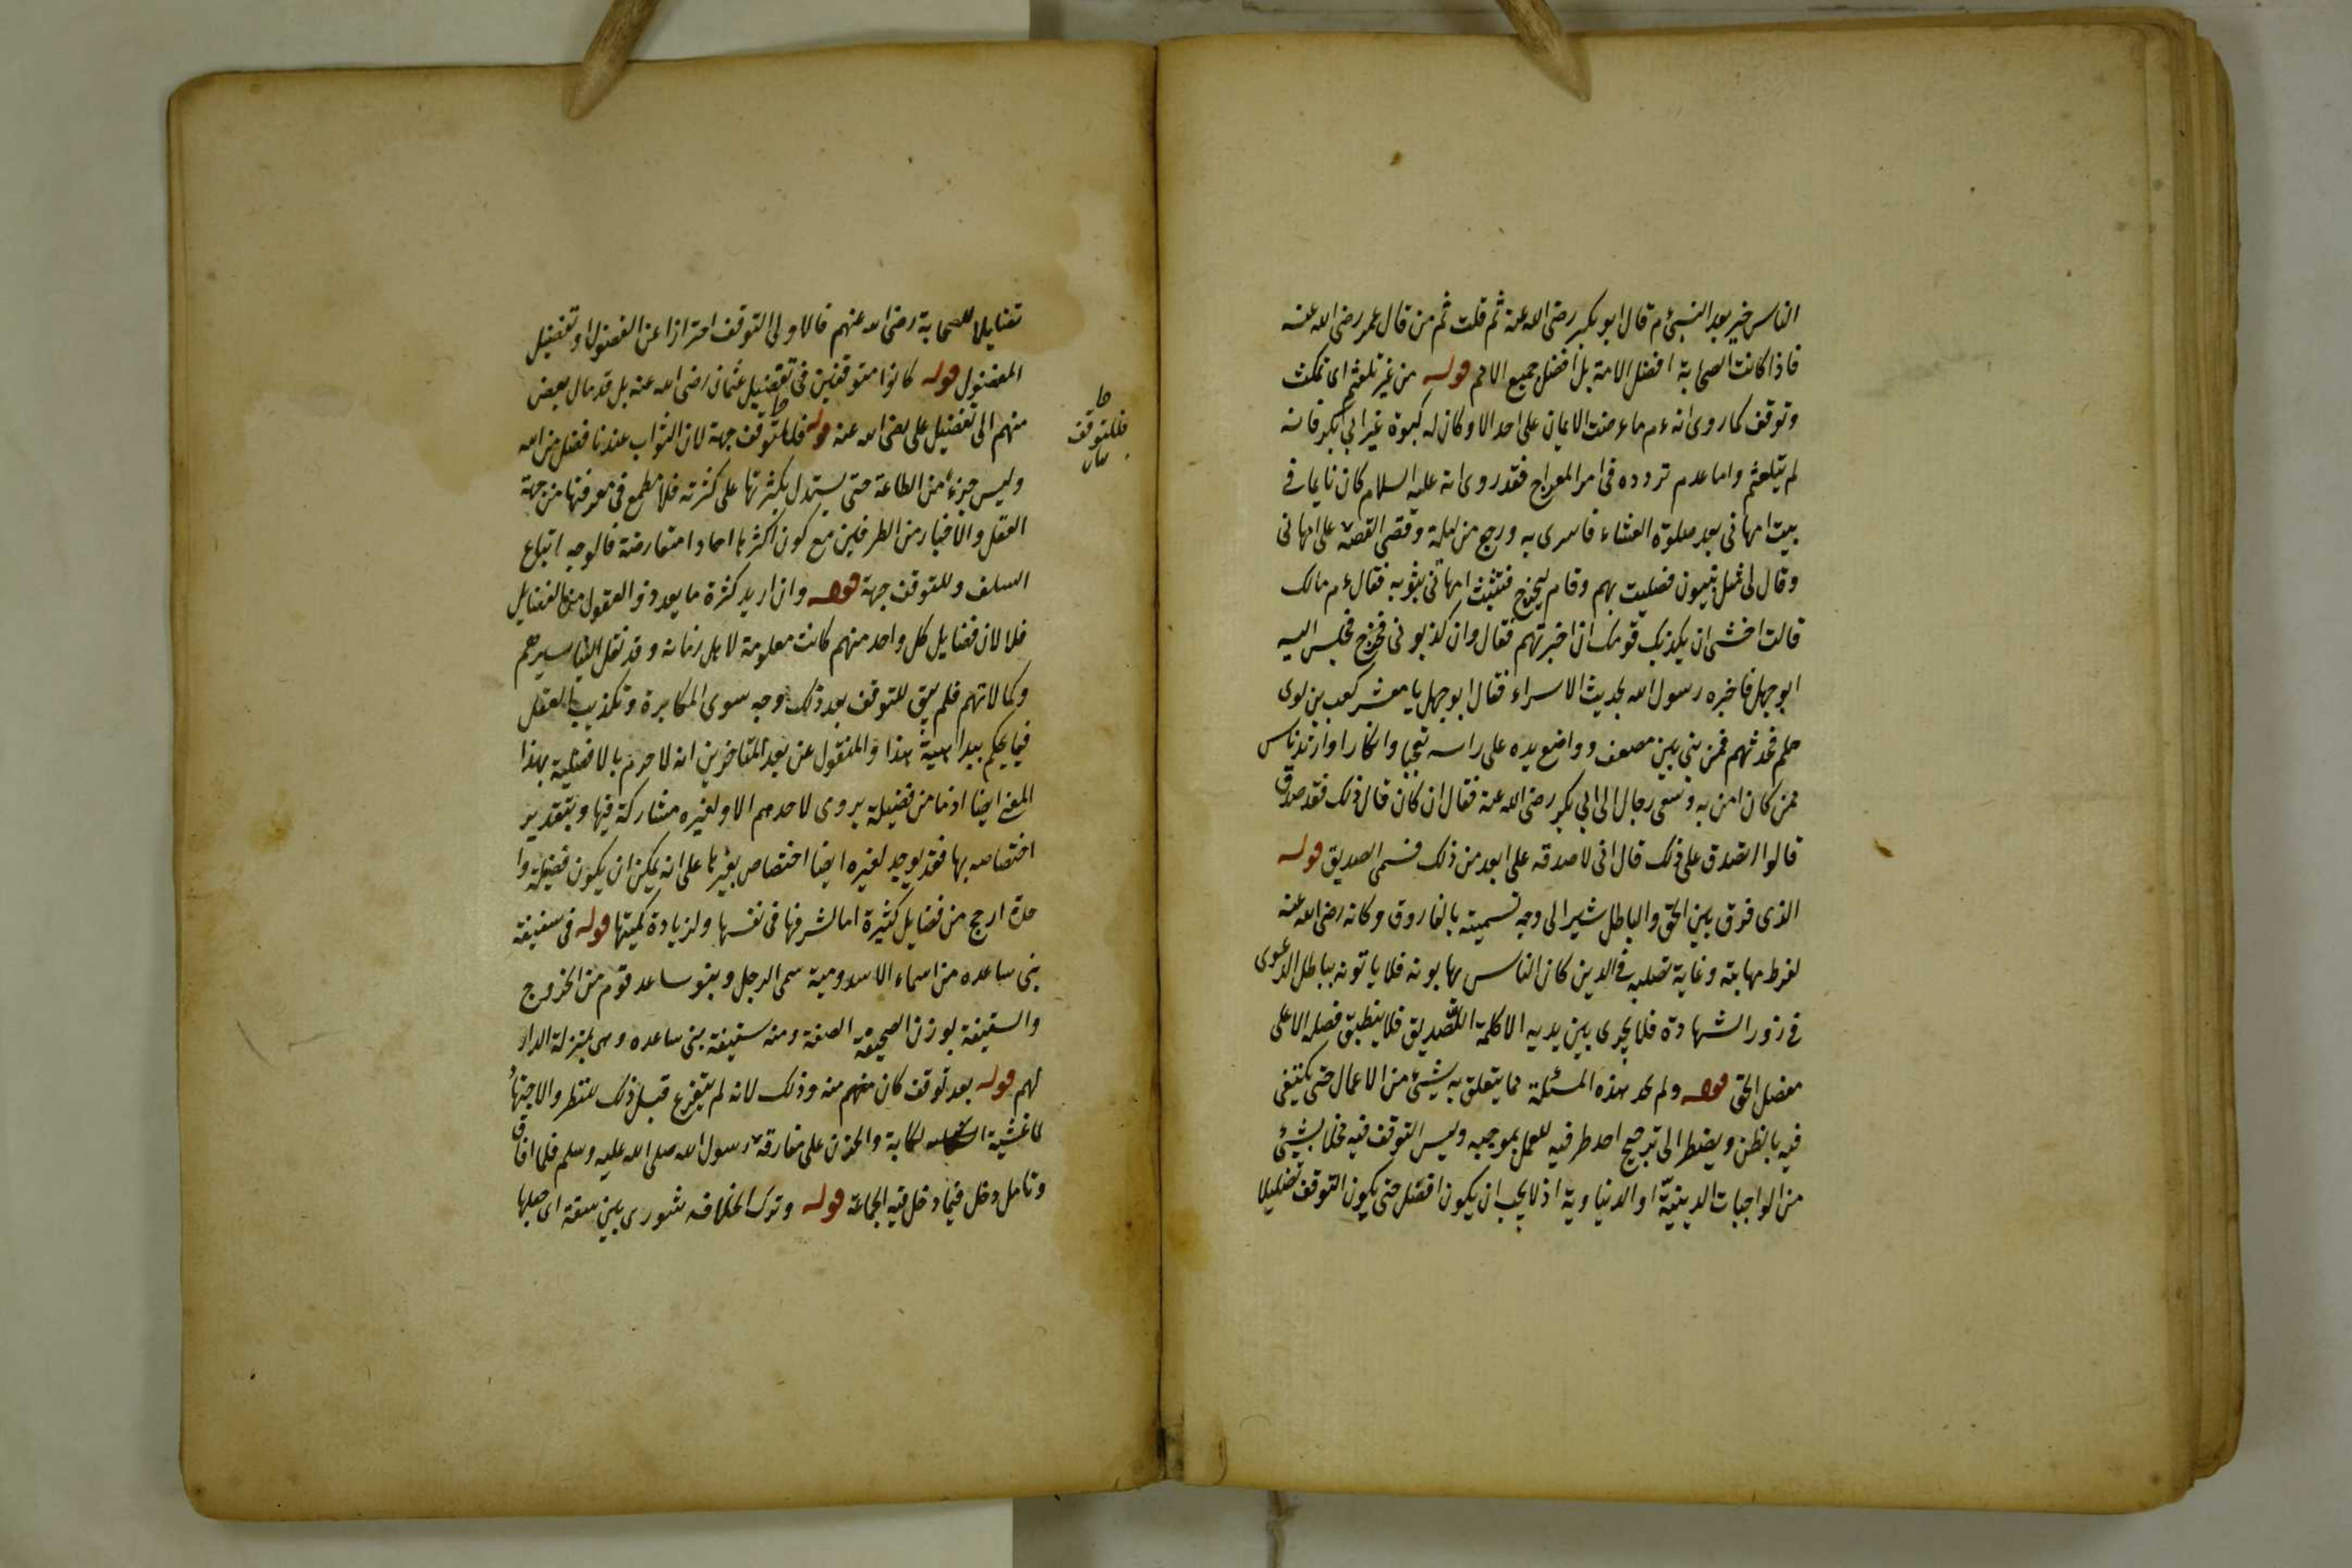 الناس خير بعد النبىء م قال ابو بكر رضى الله عنه ثم قلت ثم من قال عمر رضى الله عنه
فاذا كانت الصحابة افضل الامة بل افضل جميع الامم قوله من غير تلعثم اى تمكث
وتوقف كما روى انه ء م ما عرضت الايمان على احد الا وكان له كبوة غير ابى بكر فانه
لم يتلعثم واما عدم تردده فى امر المعراج فقد روى انه عليه السلام كان نايما فى
بيت امهانى بعد صلوة العشاء فاسرى به ورجع من ليلة وقص القصة على امهانى
وقال لى مثل النبيون فصليت بهم وقام ليخرج فتشبثت امهانى بثوبه فقال ء م مالك
قالت اخشى ان يكذبك قومك ان اخبرتهم فقال وان كذبونى فخرج فجلس اليه
ابو جهل فاخبره رسول الله بحديث الاسراء فقال ابو جهل يا معشر كعب بن لوى
هلم فحدثهم فمن بنى بين مصفف وواضع يده على راسه تعجبا وانكارا وارتد ناس
ممن كان امن به وسعى رجال الى ابى بكر رضى الله عنه فقال ان كان قال ذلك فقد صدق
قالوا اتصدق على ذلك قال انى لاصدقه على ابعد من ذلك فسمى الصديق قوله
الذى فرق بين الحق والباطل يشير الى وجه تسميته بالفاروق وكانه رضى الله عنه
لفرط مهابته وغاية تصلبه فى الدين كان الناس يهابونه فلا ياتونه بباطل الدعوى
فى زور الشهادة فلا يجرى بين يديه الا كلمة التصديق فلا ينطبق فصله الا على
مفصل الحق قوله ولم نجد هذه المسئلة مما يتعلق به شيئ من الاعمال حتى يكتفى
فيه بالظن ويضطر الى ترجيح احد طرفيه للعمل بموجبه وليس التوقف فيه مخلا بشيئ
من الواجبات الدينية او الدنياوية اذ لا يجب ان يكون افضل حتى يكون التوقف تضليلا
تضليلا للصحابة رضى الله عنهم فالاولى التوقف احترازا عن الفضول او تفضيل
المفضول قوله كانوا متوقفين فى تفضيل عثمان رضى الله عنه بل قد مال بعض
منهم الى تفضيل على رضى الله عنه قوله فللتوقف جهة لان الثواب عندنا فضل من الله
وليس جزءا من الطاعة حتى يستدل بكثرتها على كثرته فلا مطمع فى معرفتها من جهة
العقل والاخبار من الطرفين مع كون اكثرها احادا متعارضة فالوجه اتباع
السلف وللتوقف جهة قوله وان اريد كثرة ما يعد ذو العقول من الفضايل
فلا لان فضايل كل واحد منهم كانت معلومة لاهل زمانه وقد نقل الينا سيرهم
وكمالاتهم فلم يبق للتوقف بعد ذلك وجه سوى المكابرة وتكذيب العقل
فيما يحكم ببداهته هذا والمنقول عن بعد المتاخرين انه لا جزم بالافضلية بهذا
المعنى ايضا اذ ما من فضيلة يروى لاحدهم الا ولغيره مشاركة فيها وبتقدير
اختصاصه بها فقد يوجد لغيره ايضا اختصاص بغيرها على انه يمكن ان يكون فضيلة وا
حدة ارجح من فضايل كثيرة اما لشرفها فى نفسها ولزيادة كميتها قوله فى سقيفة
بنى ساعده من اسماء الاسد وميته سمى الرجل وبنو ساعد قوم من الخزرج
والسقيفة بوزن الصحيفة الصفة ومنه سقيفة بنى ساعده وهى بمنزلة الدار
لهم قوله بعد توقف كان منهم منه وذلك لانه لم يتفرغ قبل ذلك للنظر والاجتهاد
لما غشيه الكابة والحزن على مفارقة رسول الله صلى الله عليه وسلم فلما افاق
وتامل دخل فيما دخل فيه الجماعة قوله وترك الخلافه شورى بين ستة اى جعلها
فللتوقف